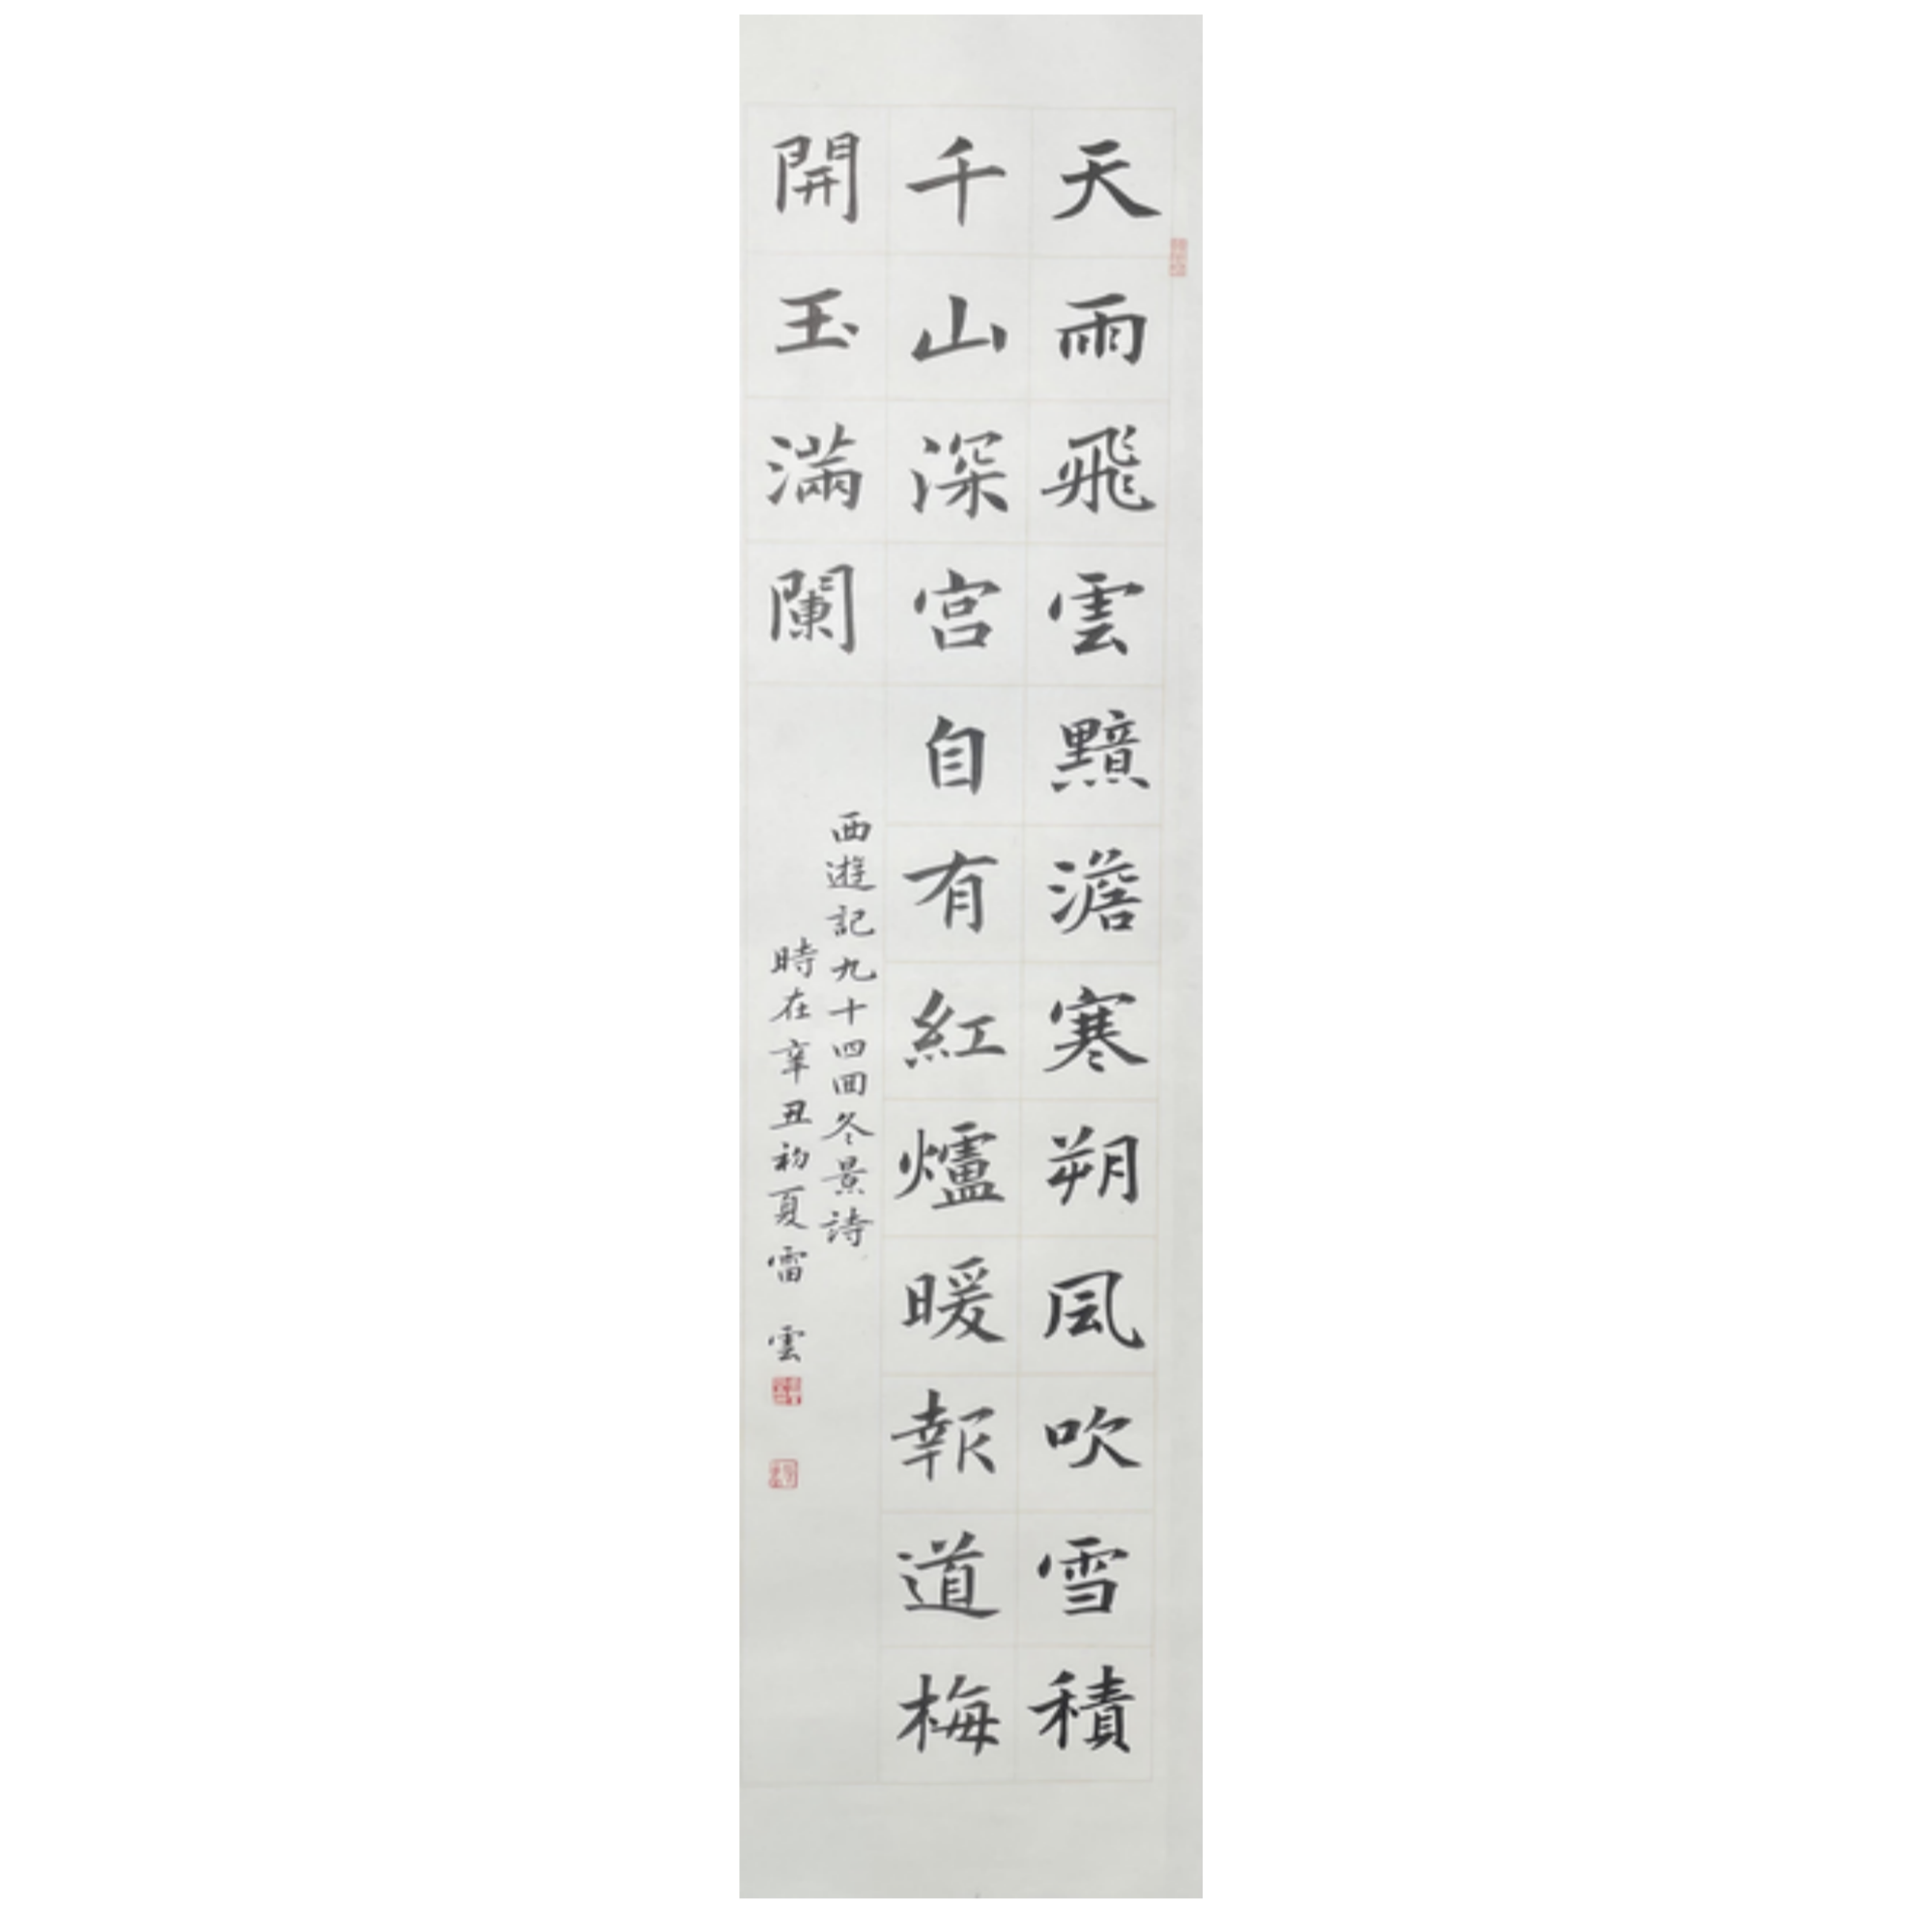 天雨飛雲黯澹寒朔風吹雪積
千山深宮自有紅爐暖報道梅
開玉滿闌
西遊記九十四回冬景詩
時在辛丑初夏雷雲